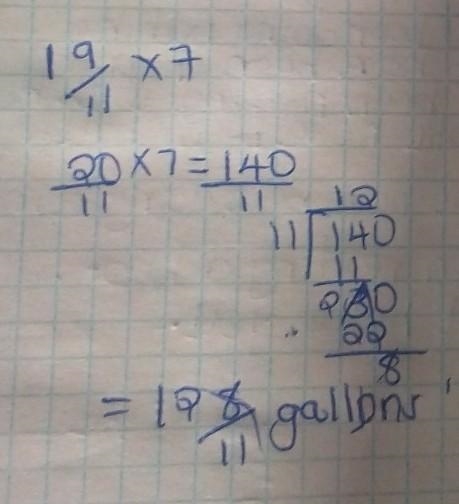 1 9/11 x 7
20/11 x 7 = 140/11
12
11 140
11
30
22
8
= 12 8/11 gallons